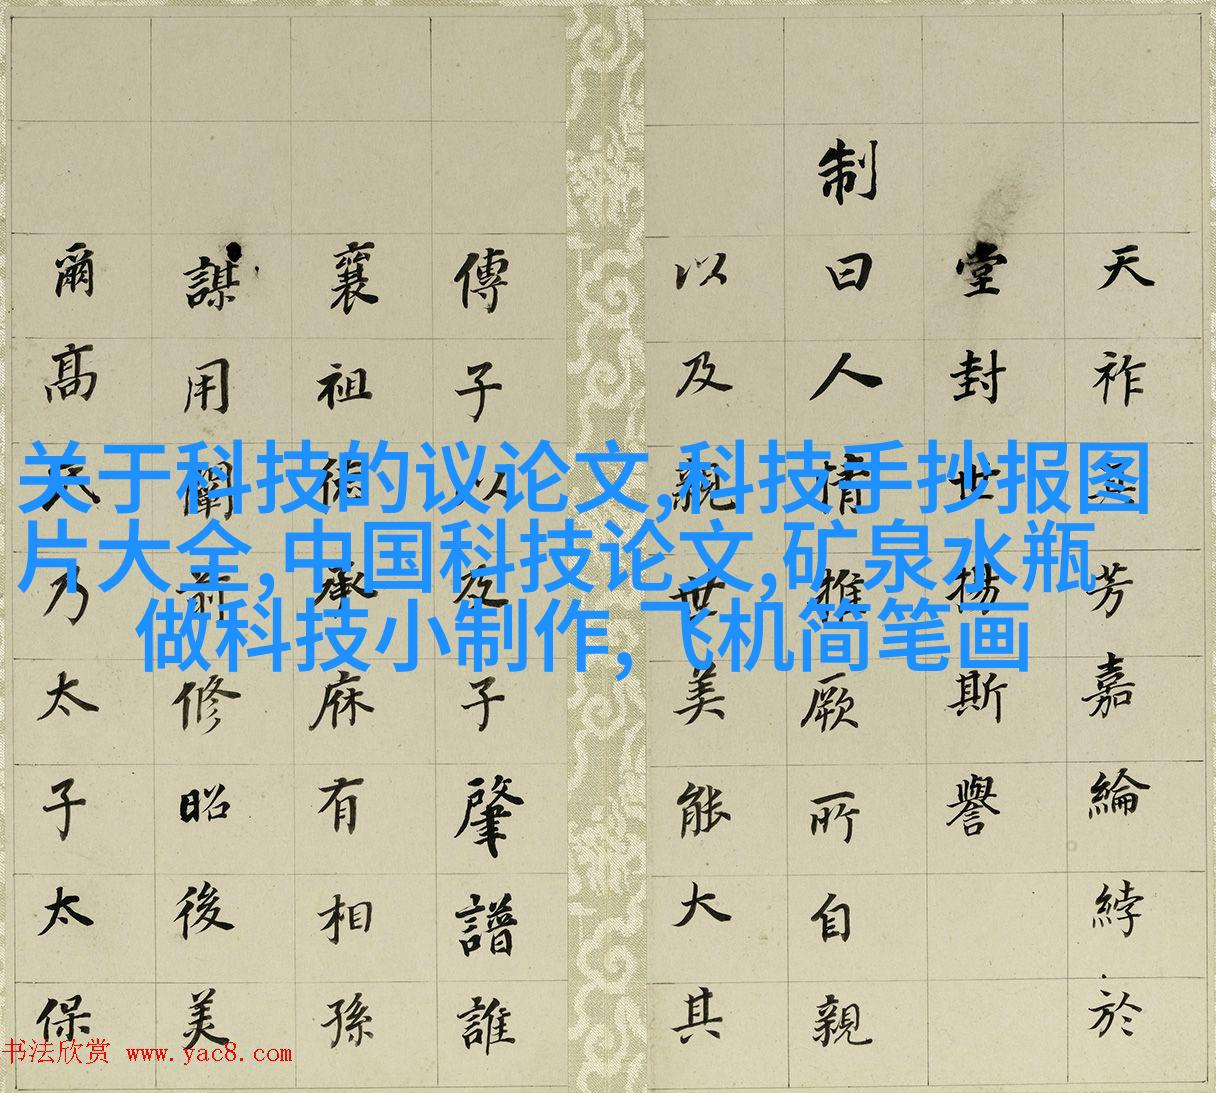 天祚芳嘉綸綍於
堂封世揚斯譽
制曰人情推厥所自親
以及親世美能大其
傳子以及子肇譜誰
襄祖德承庥有相孫
謀用闡前修昭後美
爾高氏乃太子太保
关于科技的议论文,科技手抄报图
片大全,中国科技论文,矿泉水瓶
做科技小制作,飞机简笔画
书法欣赏 www.yac8.com